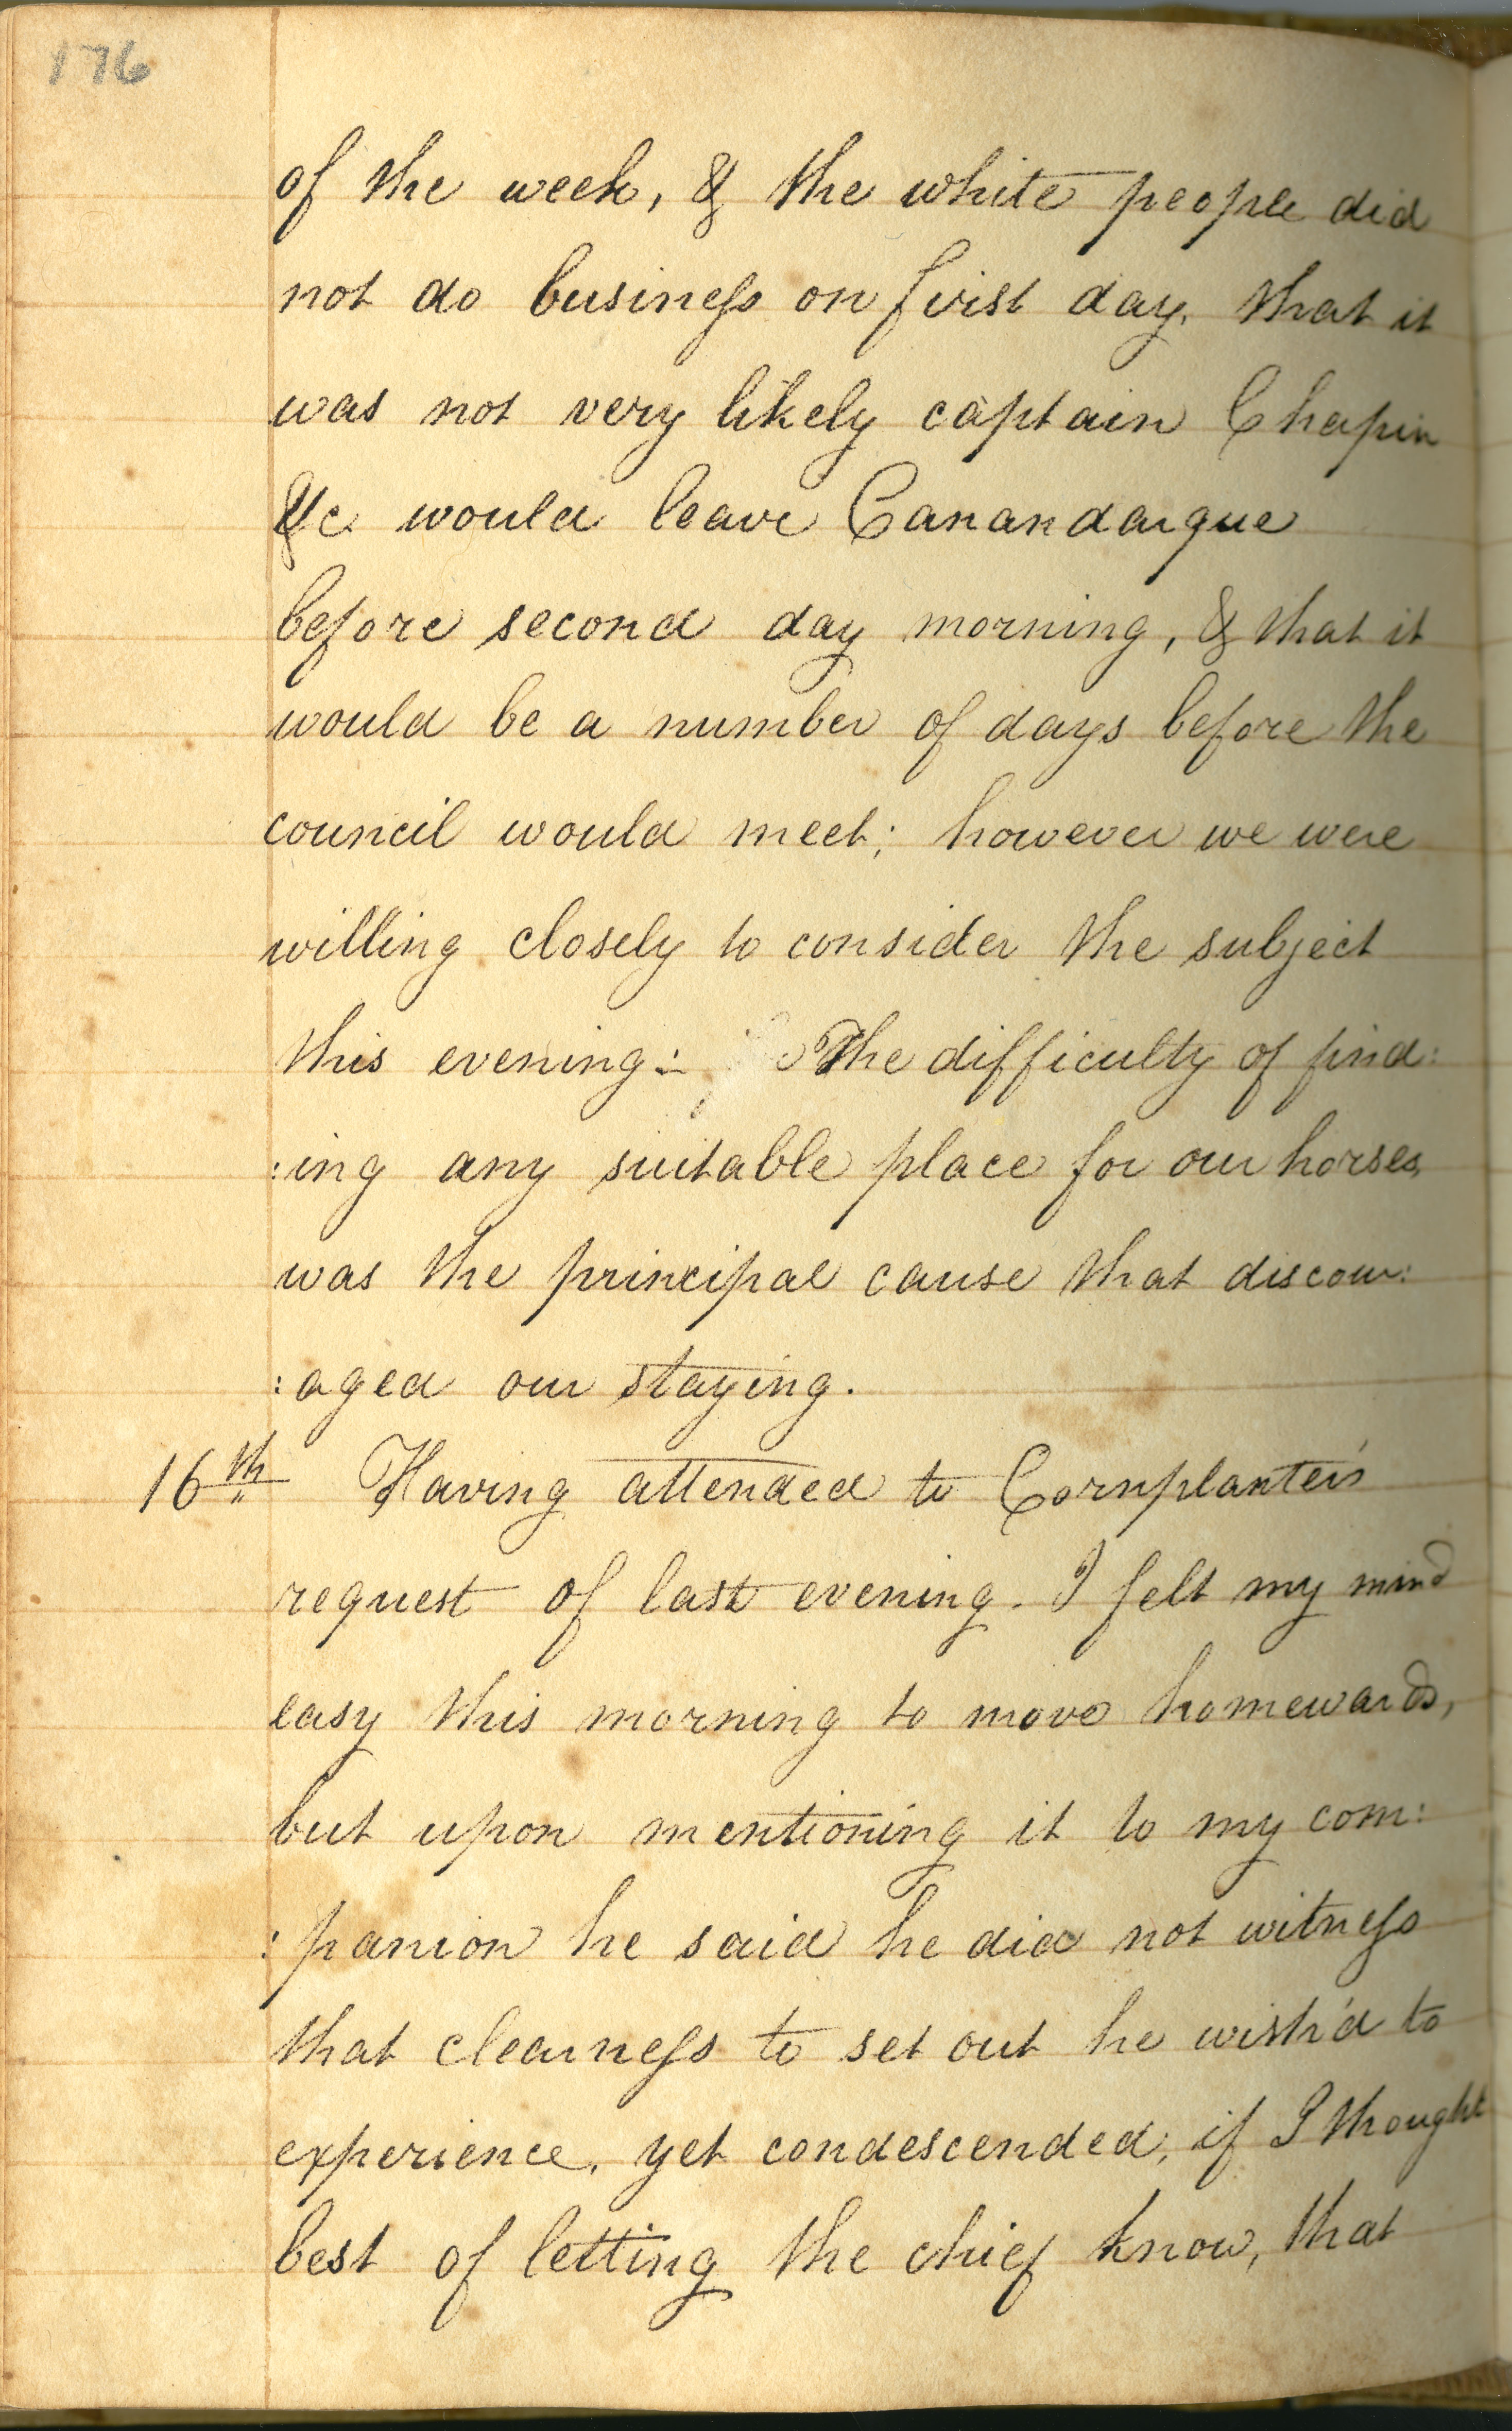 176
of the week, & the white people did
not do business on first day, that it
was not very likely captain Chapin
&c would leave Canandargue
before second day morning, & that it
would be a number of days before the
council would meet; however we were
willing closely to consider the subject
this evening:- The difficulty of find:
:ing any suitable place for our horses,
was the principal cause that discour:
:aged our staying.
16th Having attended to Cornplanter's
request of last evening. I felt my mind
easy this morning to move homewards,
but upon mentioning it to my com:
:panion he said he did not witness
that clearness to set out he wish'd to
experience, yet condescended, if I thought
best of letting the chief know, that